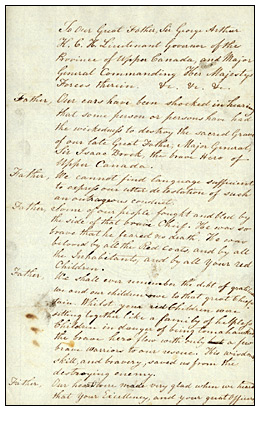 To Our Great Father, Sir George Arthur
K. C. H. Lieutenant Governor of the
Province of Upper Canada, and Major
General Commanding Her Majestys
Forces therein. &c. &c. &c.
Father, Our ears have been shocked in hearing
that some person or persons have had
the wickedness to destroy the sacred Grave
of our late Great Father, Major General,
Sir Isaac Brock, the brave Hero of
Upper Canada.
Father, We cannot find language sufficient
to express our utter detestation of such
an outrageous conduct.
Father, Some of our people fought and bled by
the side of that brave Chief. He was so
brave that he feared no death. He was
beloved by all the Red Coats, and by all
the Inhabitants, and by all Your red
Children.
Father, We shall ever remember the debt of
we and our children owe to that great
Whilst your red Children were
sitting together like a family of helpless
Children in danger of being
the brave hero flew with only a few
warriors to our rescue. His wisdom,
skill, and bravery, saved us from the
destroying enemy.
Father, Our hearts were made very glad when we heard
that Your Excellency, and your great Officers